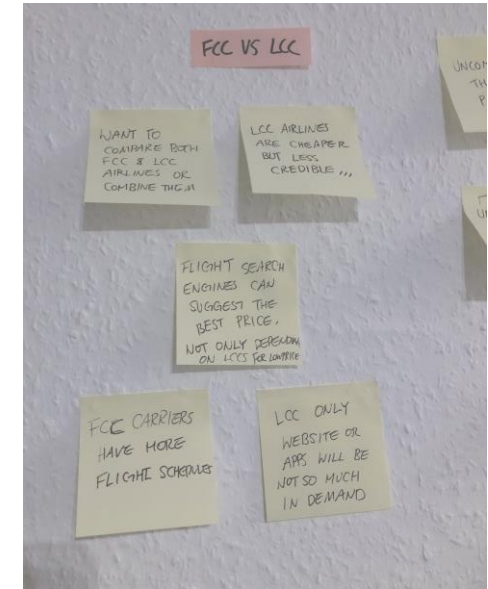 FCC VS LCC
WANT TO
COMPARE BOTH
FCC & LCC
AIRLINES OR
COMBINE THEM
LCC AIRLINES
ARE CHEAPER
BUT LESS
CREDIBLE ,,,
FLIGHT SEARCH
ENGINES CAN
SUGGEST THE
BEST PRICE.
NOT ONLY DEPENDING
ON LCCS FOR LOWPRICE
FCC CARRIERS
HAVE MORE
FLIGHT SCHEDULES
LCC ONLY
WEBSITE OR
APPS WILL BE
NOT SO MUCH
IN DEMAND
UNCOM
TH
P